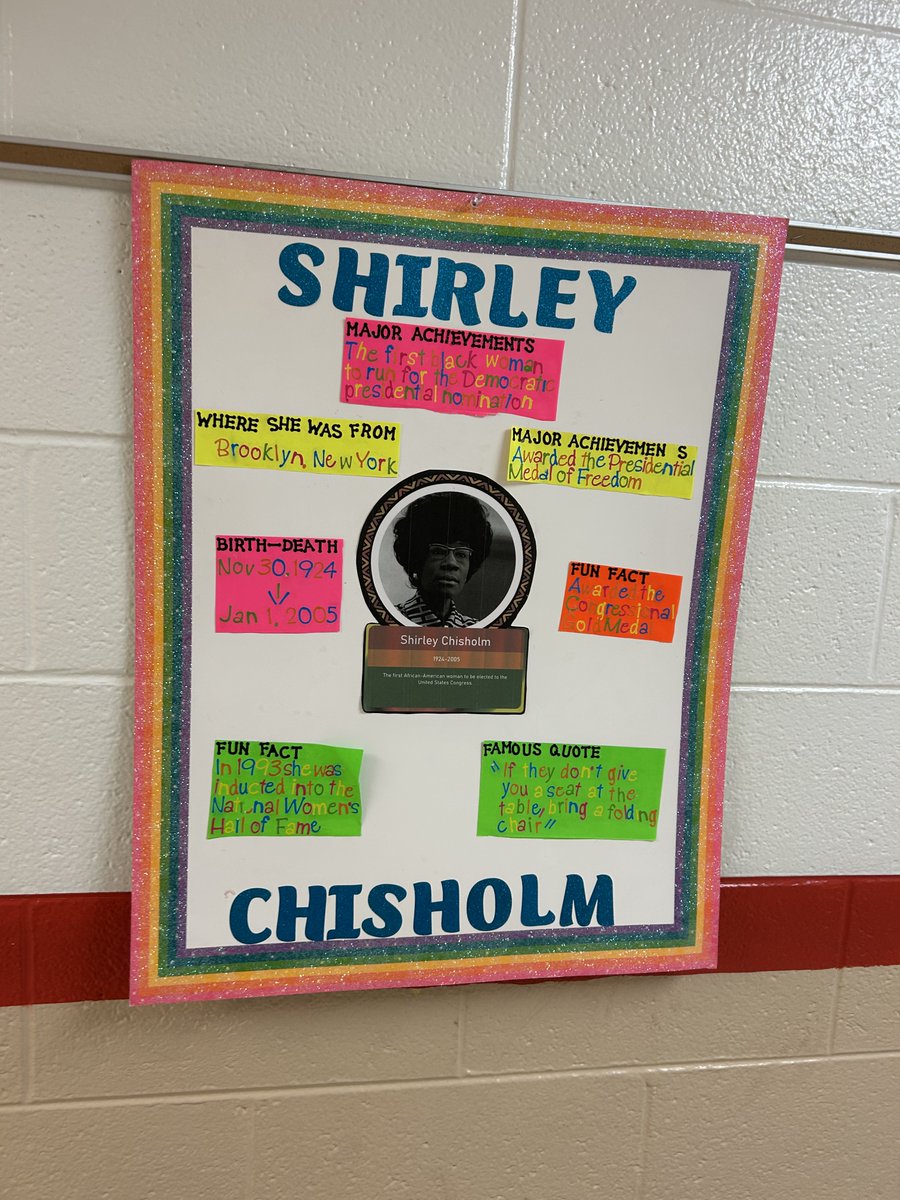 SHIRLEY
MAJOR ACHIEVEMENTS
The first black woman
to run for the Democratic
presidential nomination
WHERE SHE WAS FROM
Brooklyn, New York
MAJOR ACHIEVEMEN S
Awarded the Presidential
Medal of Freedom
BIRTH—DEATH
Nov 30, 1924
↓
Jan 1, 2005
Shirley Chisholm
1924-2005
The first African-American woman to be elected to the
United States Congress.
FUN FACT
Awarded the
Congressional
Gold Medal
FUN FACT
In 1993 she was
inducted into the
National Women's
Hall of Fame
FAMOUS QUOTE
"If they don't give
you a seat at the
table, bring a folding
chair"
CHISHOLM